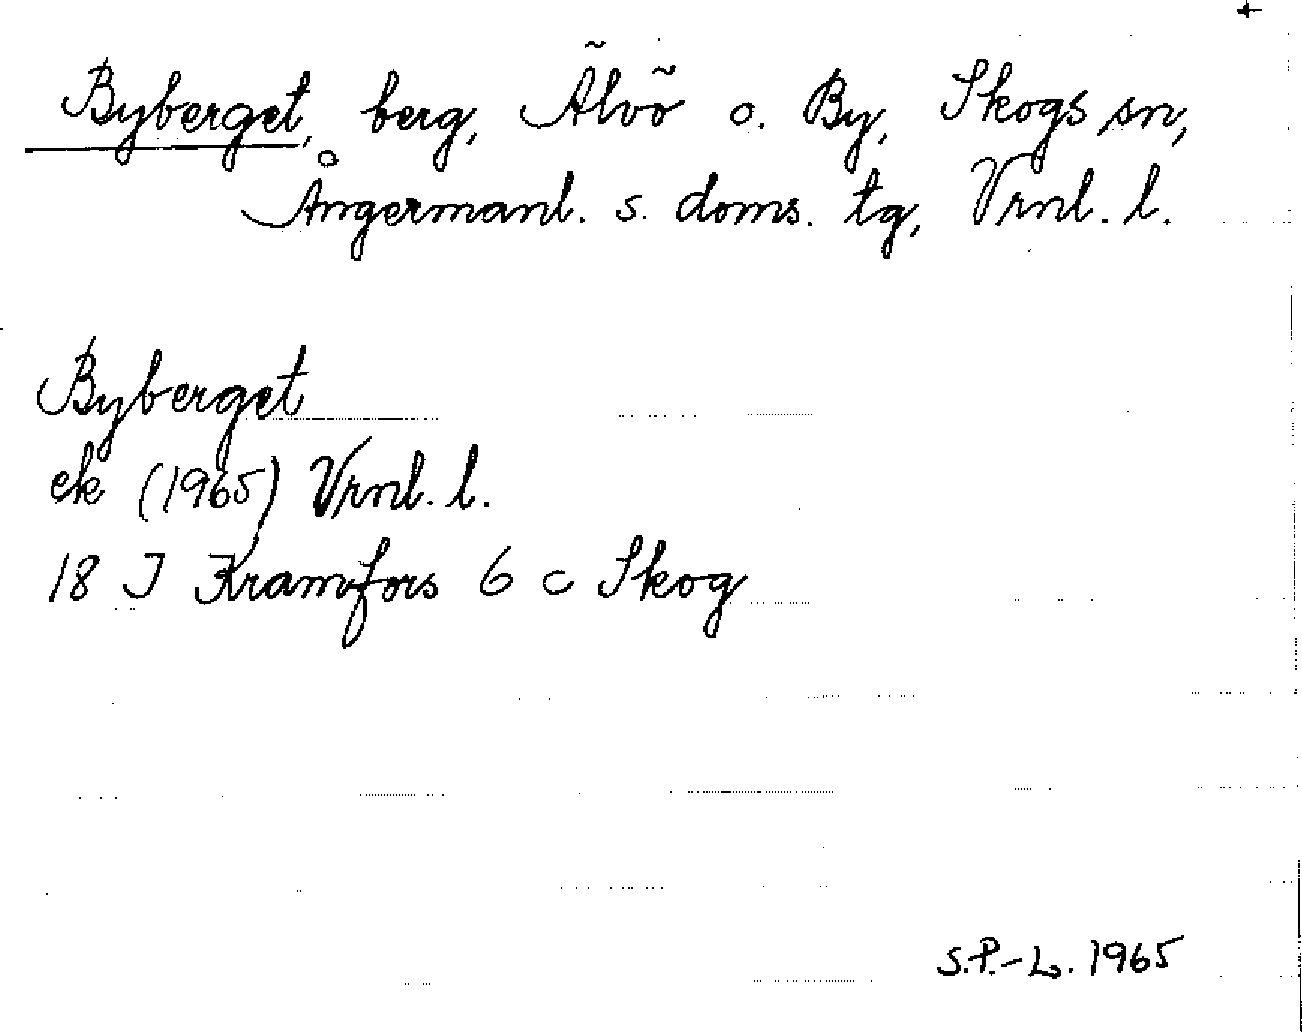 +
Byberget, berg, Älvö o. By, Skogs sn,
Ångermanl. s. doms. tg, Vrnl. l.
Byberget
ek (1965) Vrnl. l.
18 I Kramfors 6 c Skog
S.P.-L. 1965